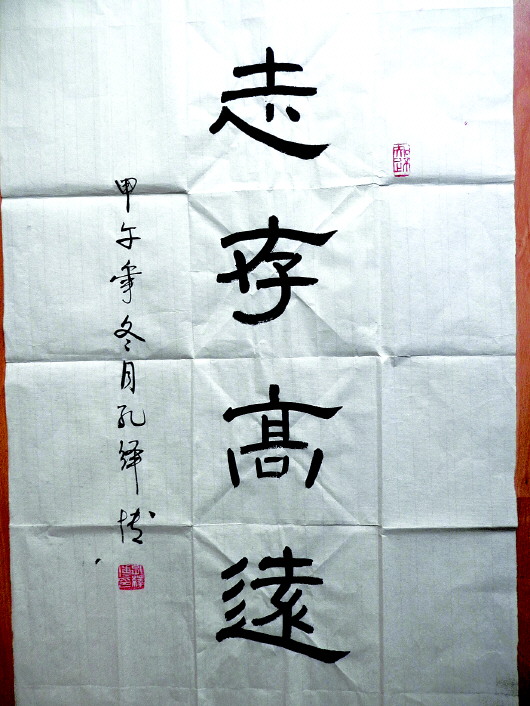 志存高遠
甲午年冬月孔繹